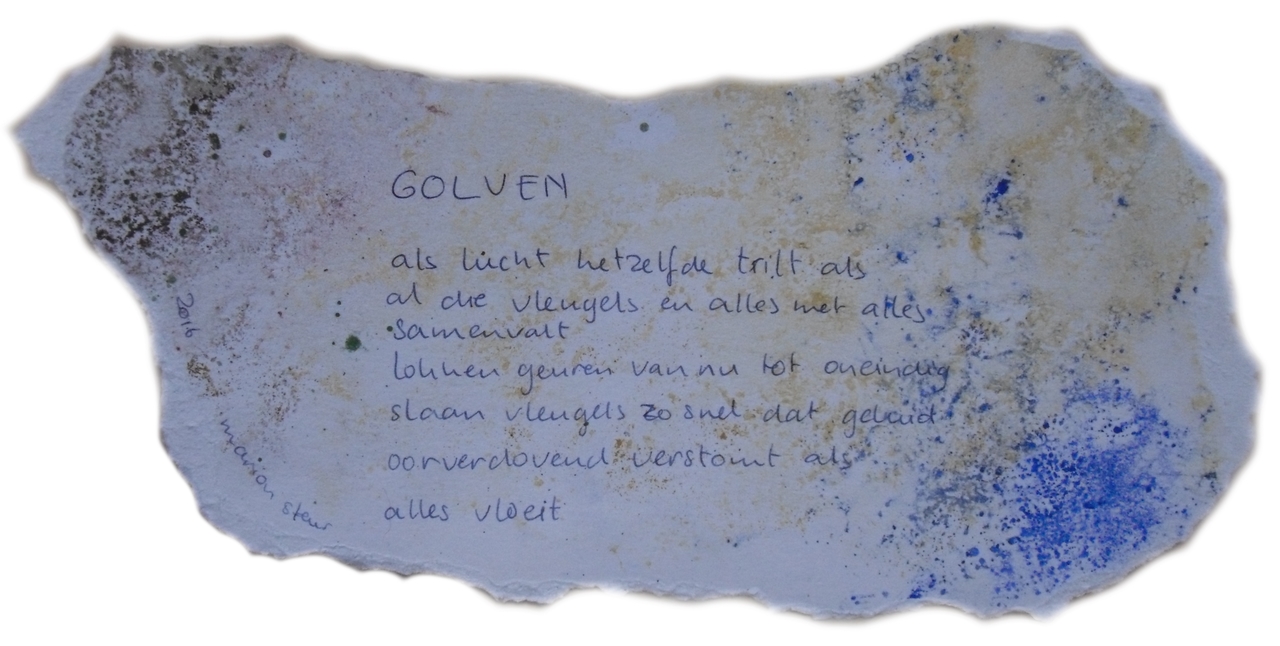 GOLVEN
als lucht hetzelfde trilt als
al die vleugels en alles met alles
samenvalt
lokken geuren van nu tot oneindig
slaan vleugels zo snel dat geluid
oorverdovend verstomt als
alles vloeit
2016
marion steur